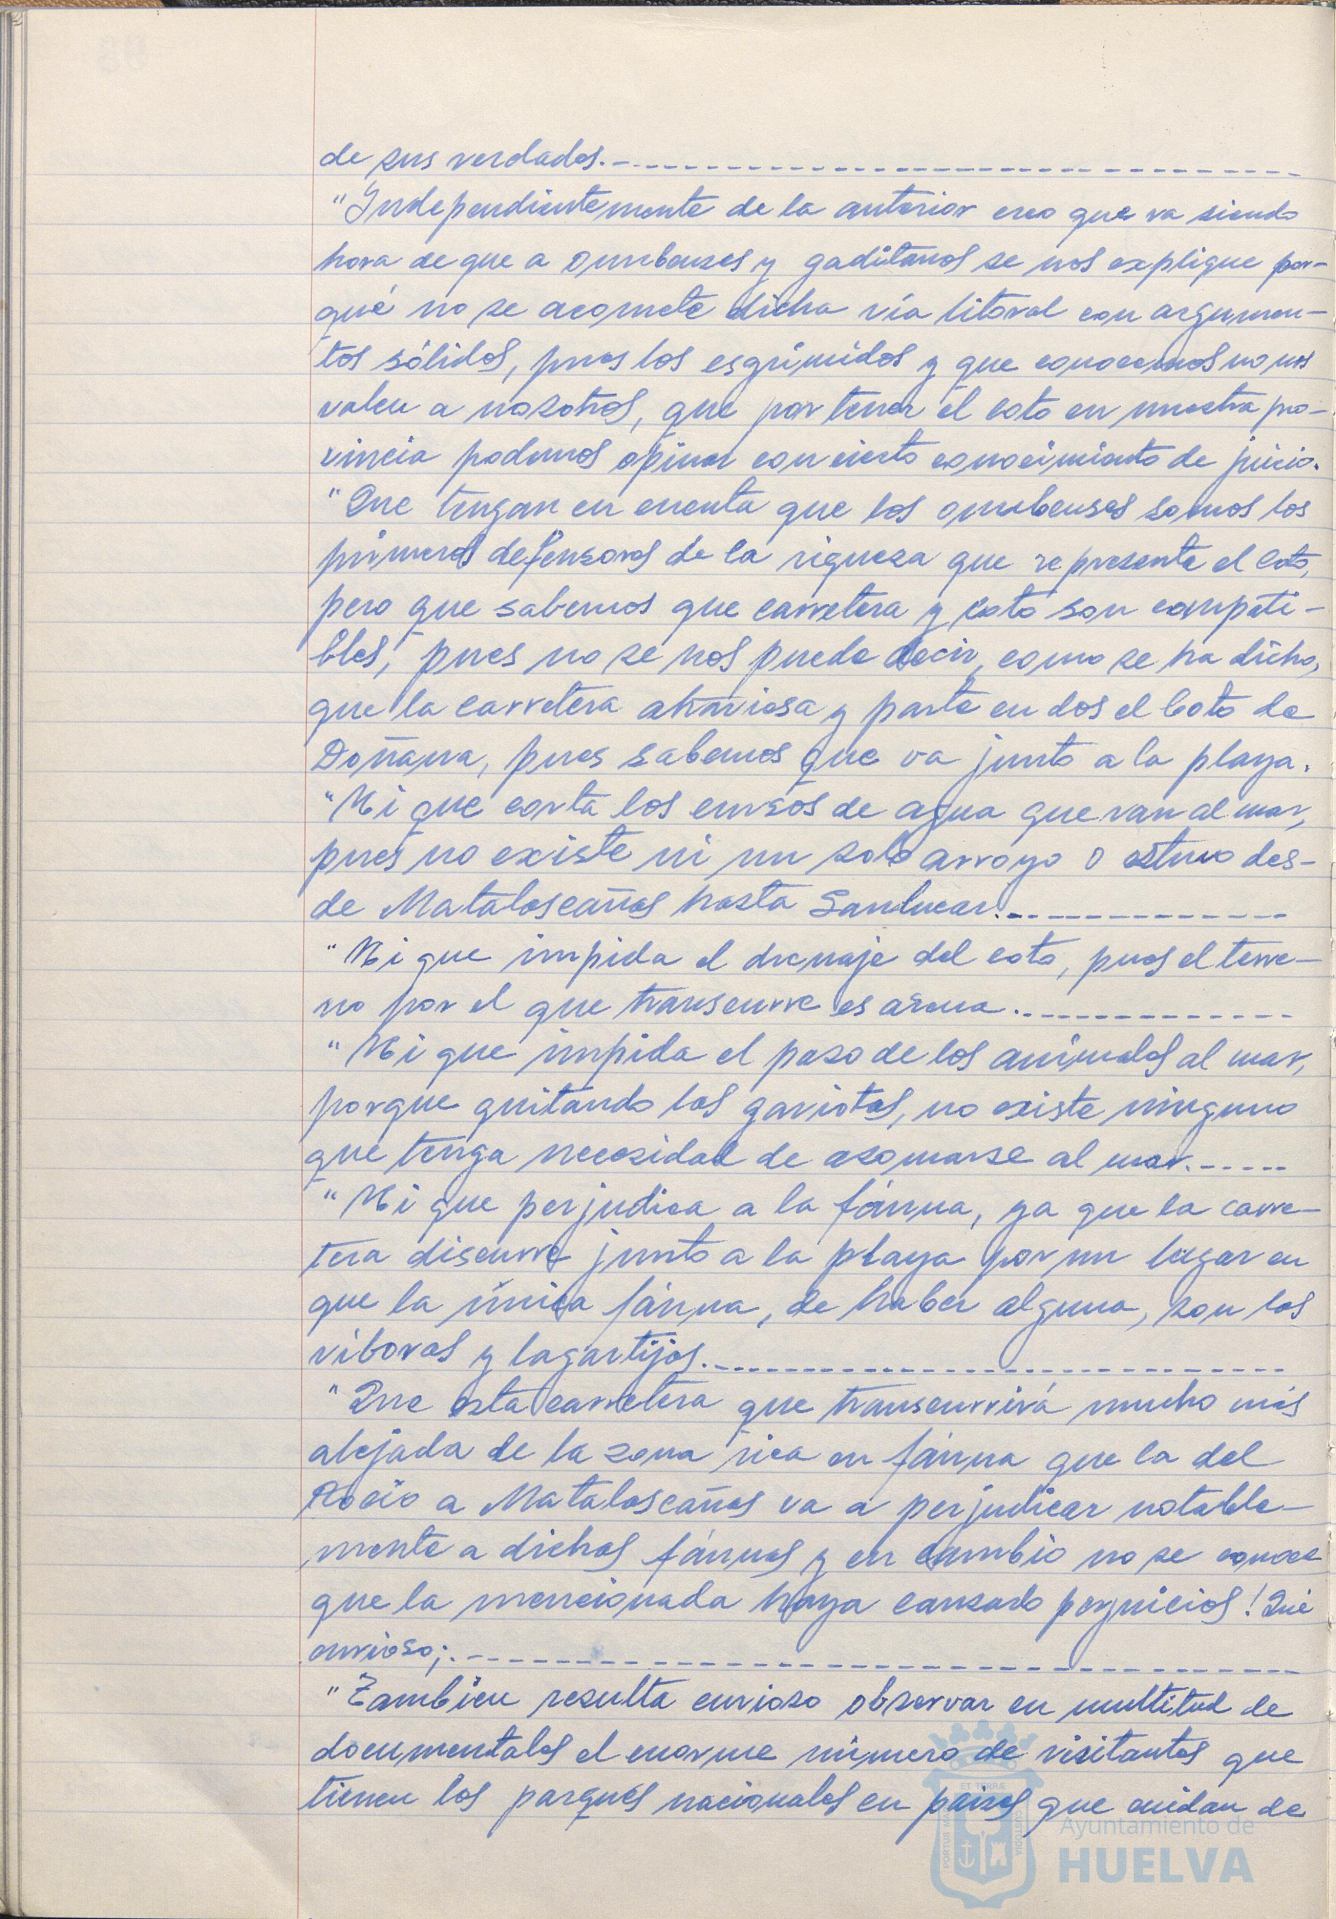 de sus verdades.
"Independientemente de la anterior creo que va siendo
hora de que a onubenses y gaditanos se nos explique por-
qué no se acomete dicha vía litoral con argumen-
tos sólidos, pues los esgrimidos y que conocemos no nos
valen a nosotros, que por tener el coto en nuestra pro-
vincia podemos opinar con cierto conocimiento de juicio.
"Que tengan en cuenta que los onubenses somos los
primeros defensores de la riqueza que representa el Coto,
pero que sabemos que carretera y coto son compati-
bles, pues no se nos puede decir, como se ha dicho,
que la carretera atraviesa y parte en dos el Coto de
Doñana, pues sabemos que va junto a la playa.
"Ni que corta los cursos de agua que van al mar,
pues no existe ni un solo arroyo o estero des-
de Matalascañas hasta Sanlucar.
"Ni que impida el drenaje del coto, pues el terre-
no por el que transcurre es arena.
"Ni que impida el paso de los animales al mar,
porque quitando las gaviotas, no existe ninguno
que tenga necesidad de asomarse al mar.
"Ni que perjudica a la fáuna, ya que la carre-
tera discurre junto a la playa por un lugar en
que la única fáuna, de haber alguna, son las
víboras y lagartijas.
"Que esta carretera que transcurrirá mucho más
alejada de la zona rica en fáuna que la del
Rocio a Matalascañas va a perjudicar notable-
mente a dichas fáunas y en cambio no se conoce
que la mencionada haya causado perjuicios ! Qué
curioso¡.
"También resulta curioso observar en multitud de
documentales el enorme número de visitantes que
tienen los parques nacionales en países que cuidan de
Ayuntamiento de
HUELVA